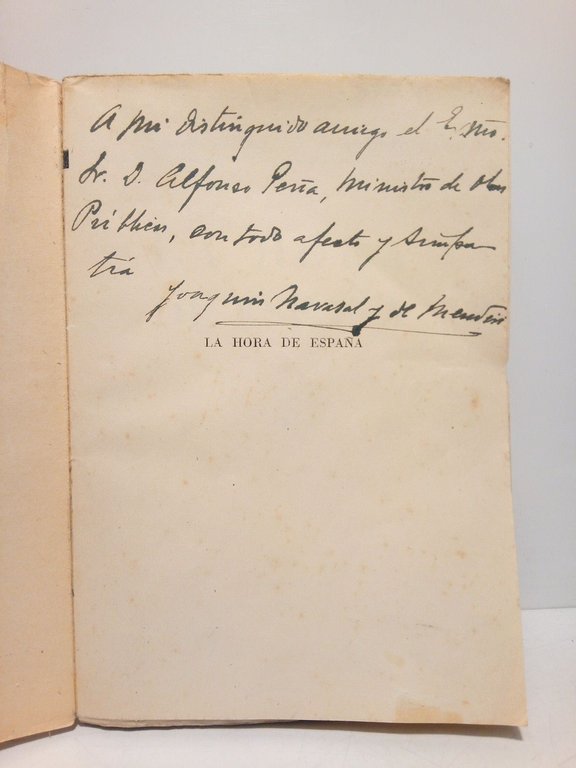 A mi distinguido amigo el E. mo.
Sr. D. Alfonso Peña, Ministro de Obras
Públicas, con todo afecto y simpa-
tía
Joaquin Navasal y de Mendiri
LA HORA DE ESPAÑA